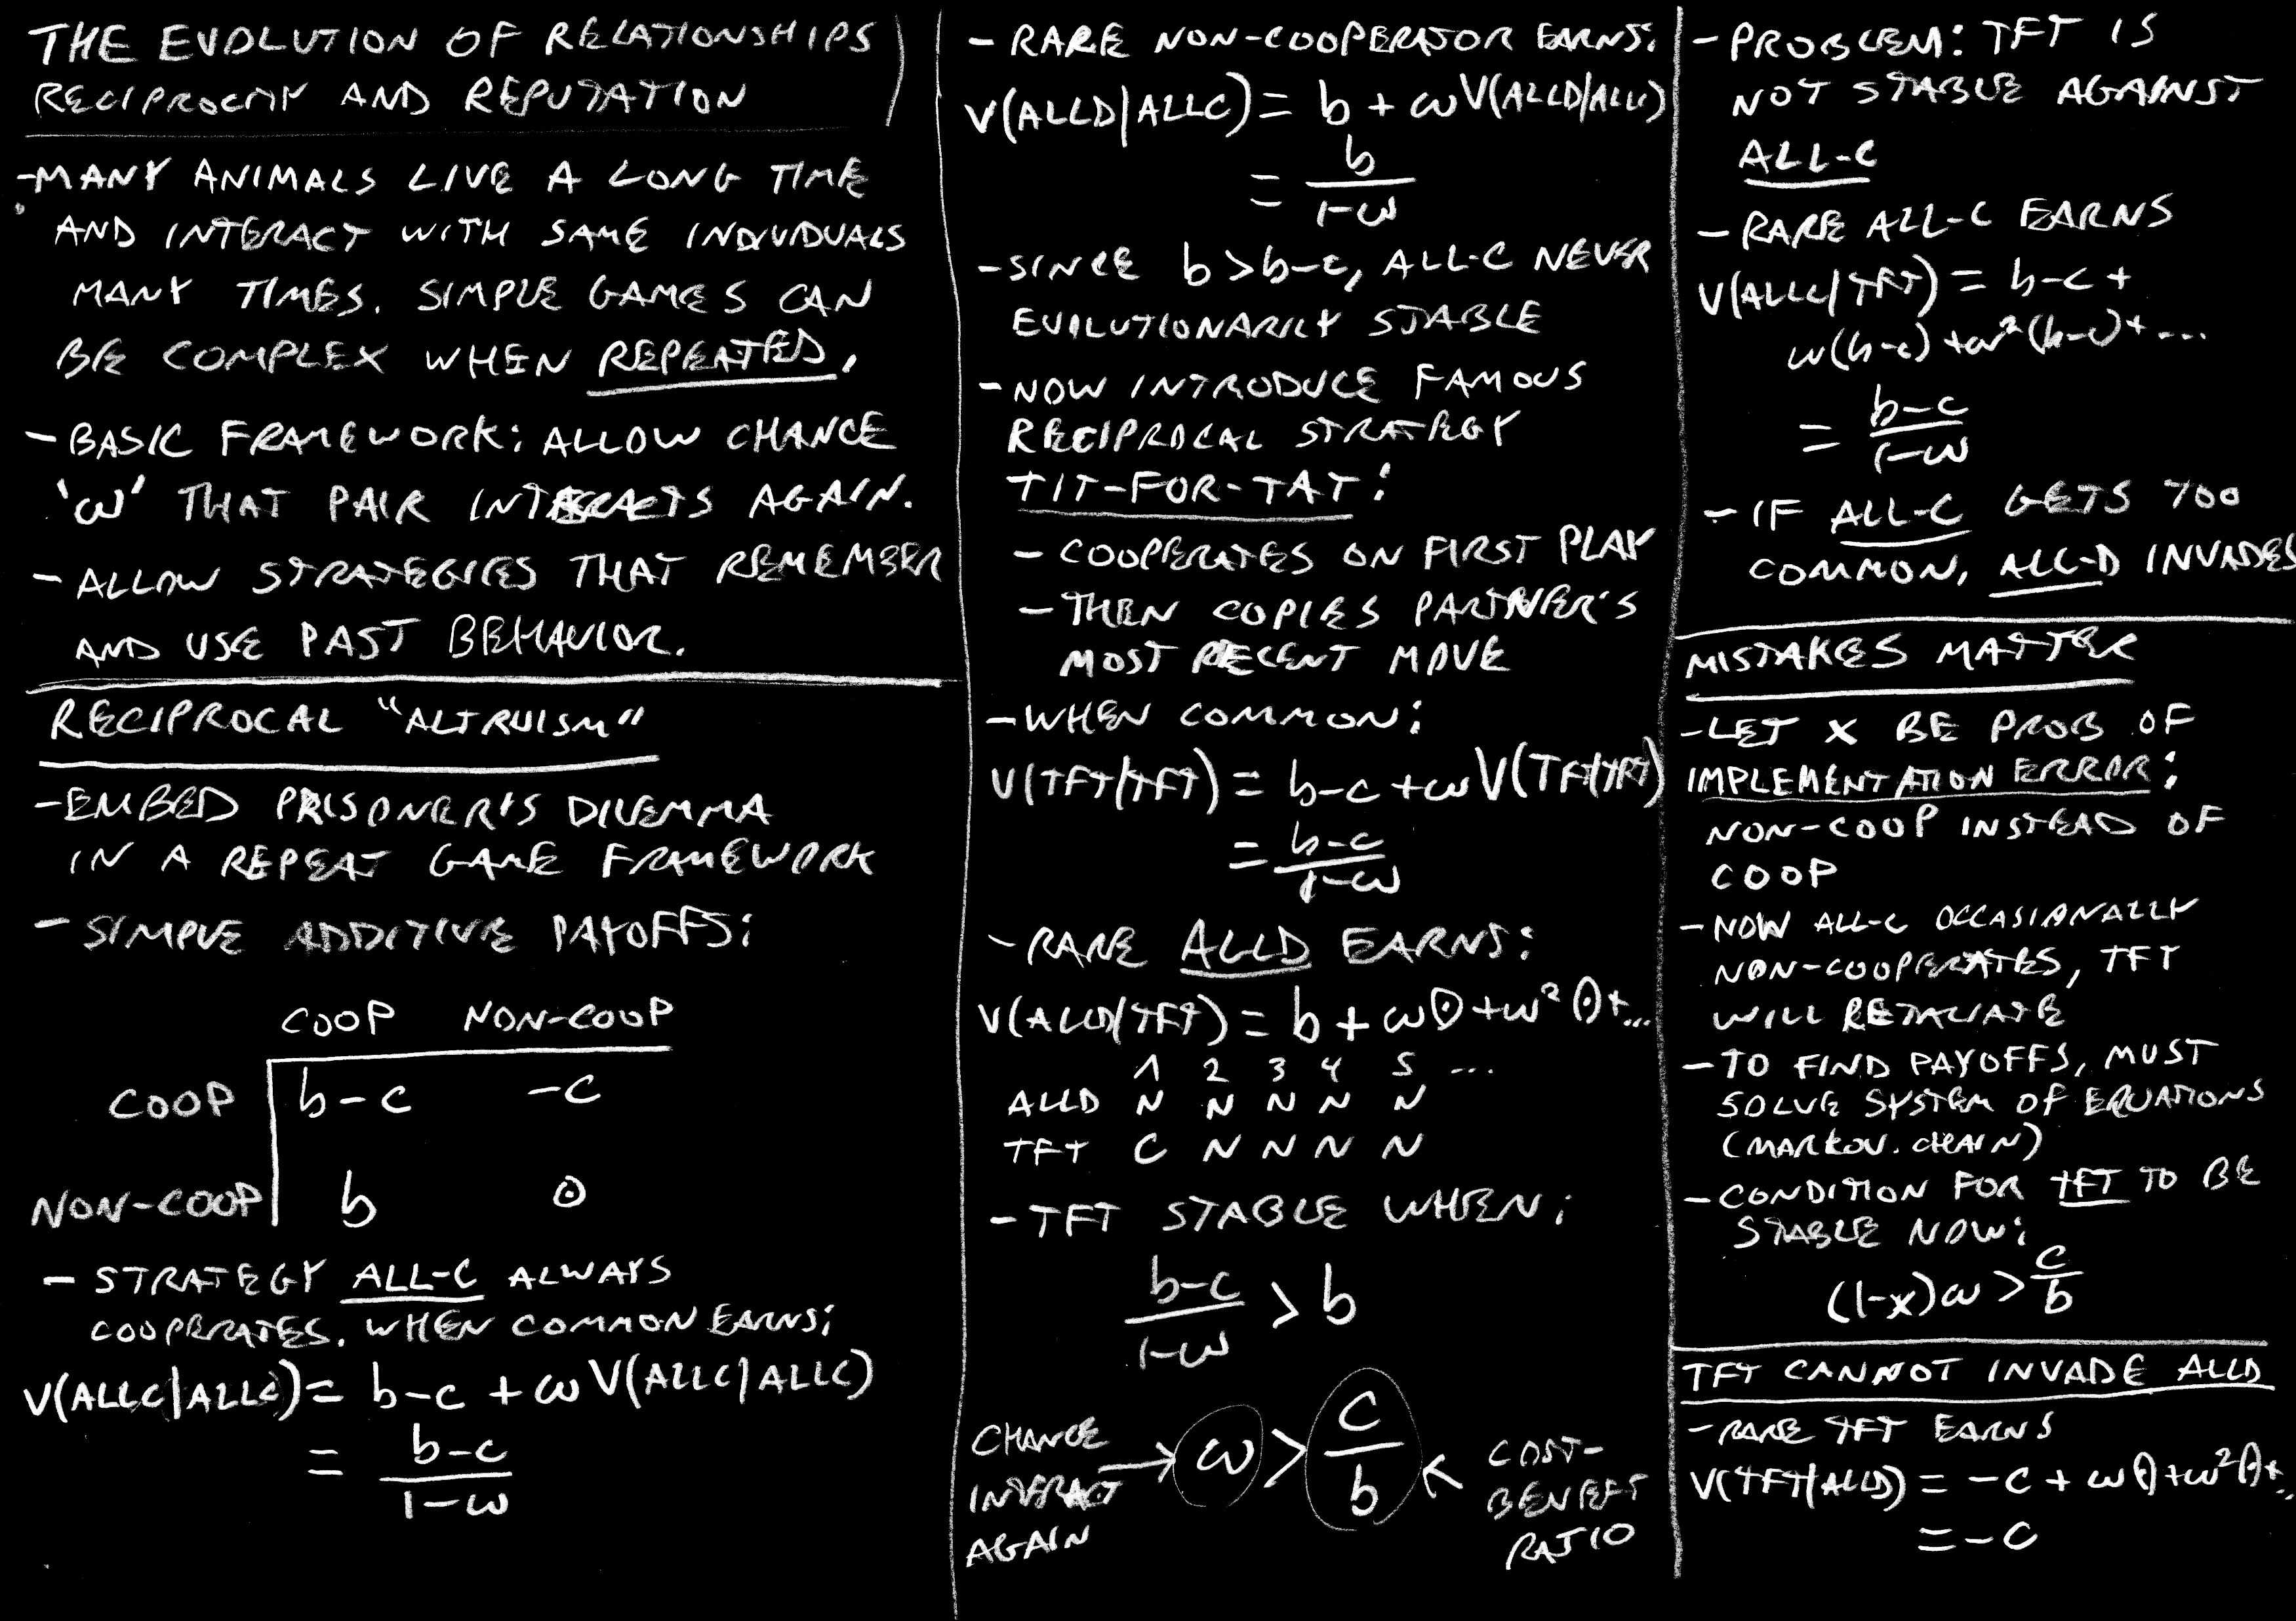 THE EVOLUTION OF RELATIONSHIPS
RECIPROCITY AND REPUTATION
- MANY ANIMALS LIVE A LONG TIME
AND INTERACT WITH SAME INDIVIDUALS
MANY TIMES. SIMPLE GAMES CAN
BE COMPLEX WHEN REPEATED.
- BASIC FRAMEWORK: ALLOW CHANCE
'ω' THAT PAIR INTERACTS AGAIN.
- ALLOW STRATEGIES THAT REMEMBER
AND USE PAST BEHAVIOR.
RECIPROCAL "ALTRUISM"
- EMBED PRISONER'S DILEMMA
IN A REPEAT GAME FRAMEWORK
- SIMPLE ADDITIVE PAYOFFS:
COOP NON-COOP
COOP b-c -c
NON-COOP b 0
- STRATEGY ALL-C ALWAYS
COOPERATES. WHEN COMMON EARNS:
V(ALLC|ALLC) = b-c + ω V(ALLC|ALLC)
= b-c / 1-ω
- RARE NON-COOPERATOR EARNS:
V(ALLD|ALLC) = b + ω V(ALLD|ALLC)
= b / 1-ω
- SINCE b > b-c, ALL-C NEVER
EVOLUTIONARILY STABLE
- NOW INTRODUCE FAMOUS
RECIPROCAL STRATEGY
TIT-FOR-TAT:
- COOPERATES ON FIRST PLAY
- THEN COPIES PARTNER'S
MOST RECENT MOVE
- WHEN COMMON:
V(TFT|TFT) = b-c + ω V(TFT|TFT)
= b-c / 1-ω
- RARE ALLD EARNS:
V(ALLD|TFT) = b + ω0 + ω² 0 + ...
1 2 3 4 5 ...
ALLD N N N N N
TFT C N N N N
- TFT STABLE WHEN:
b-c / 1-ω > b
CHANCE INTERACT AGAIN → ω > c / b ← COST-BENEFIT RATIO
- PROBLEM: TFT IS
NOT STABLE AGAINST
ALL-C
- RARE ALL-C EARNS
V(ALLC|TFT) = b-c +
ω(b-c) + ω²(b-c) + ...
= b-c / 1-ω
- IF ALL-C GETS TOO
COMMON, ALL-D INVADES
MISTAKES MATTER
- LET x BE PROB OF
IMPLEMENTATION ERROR:
NON-COOP INSTEAD OF
COOP
- NOW ALL-C OCCASIONALLY
NON-COOPERATES, TFT
WILL RETALIATE
- TO FIND PAYOFFS, MUST
SOLVE SYSTEM OF EQUATIONS
(MARKOV. CHAIN)
- CONDITION FOR TFT TO BE
STABLE NOW:
(1-x)ω > c / b
TFT CANNOT INVADE ALLD
- RARE TFT EARNS
V(TFT|ALLD) = -c + ω0 + ω²0 + ...
= -c